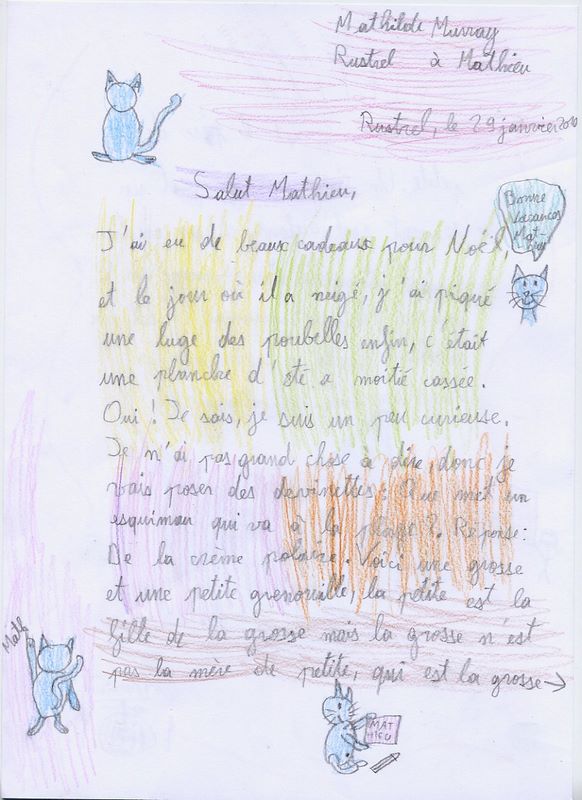 Mathilde Murray
Rustrel à Mathieu
Rustrel, le 29 janvier 2010
Salut Mathieu,
Bonne
vacances
Mat
hieu
J'ai eu de beaux cadeaux pour Noël,
et le jour où il a neigé, j'ai piqué
une luge des poubelles enfin, c'était
une planche d'été a moitié cassée.
Oui ! Je sais, je suis un peu curieuse.
Je n'ai pas grand chose à dire, donc je
vais poser des devinettes : Que met un
esquimau qui va à la plage ?. Réponse :
De la crème polaire. Voici une grosse
et une petite grenouille, la petite est la
fille de la grosse mais la grosse n'est
pas la mère de petite, qui est la grosse →
Math
MAT
HIEU